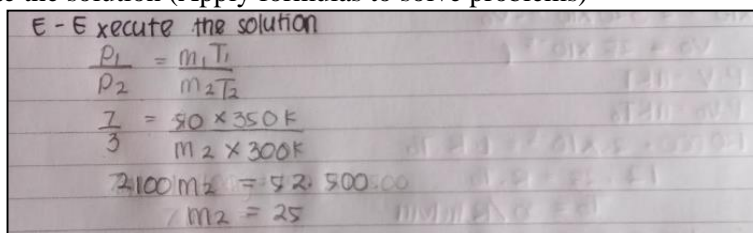 the solution (Apply formulas to solve problems)
E - E xecute the solution
P1 = m1T1
P2 m2T2
7 = 50 × 350 K
3 m2 × 300K
2100 m2 = 52.500
m2 = 25